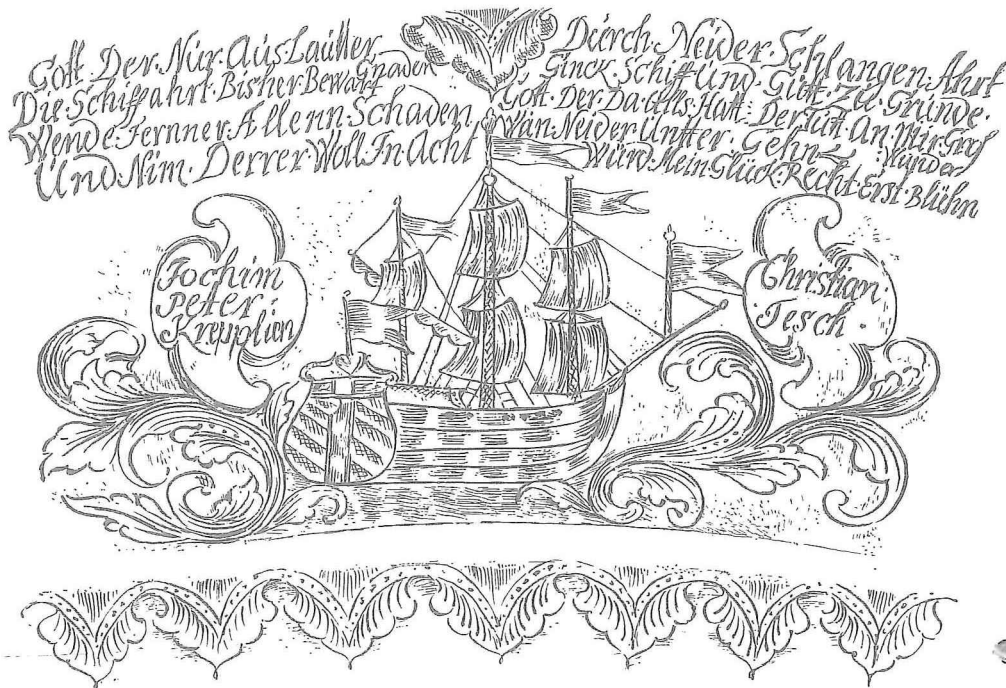 Gott. Der. Nur. Aus. Lautter
Gnaden
Die. Schiffahrt. Bisher. Bewarff
Wende. Fernner. Allenn. Schaden
Und. Nim. Derrer. Woll. In. Acht
Durch. Neider. Schlangen. Ahrt
Ginck. Schiff Und Gutt. Zu. Grunde.
Gott. Der. Da. alls. Hatt. Der Tutt. An. Mir. Gros
Wunder
Wan. Neider. Untter. Gehn
Würd. Mein. Glück. Recht. Erst. Blühn
Jochim
Peter
Kreplien
Christian
Tesch.